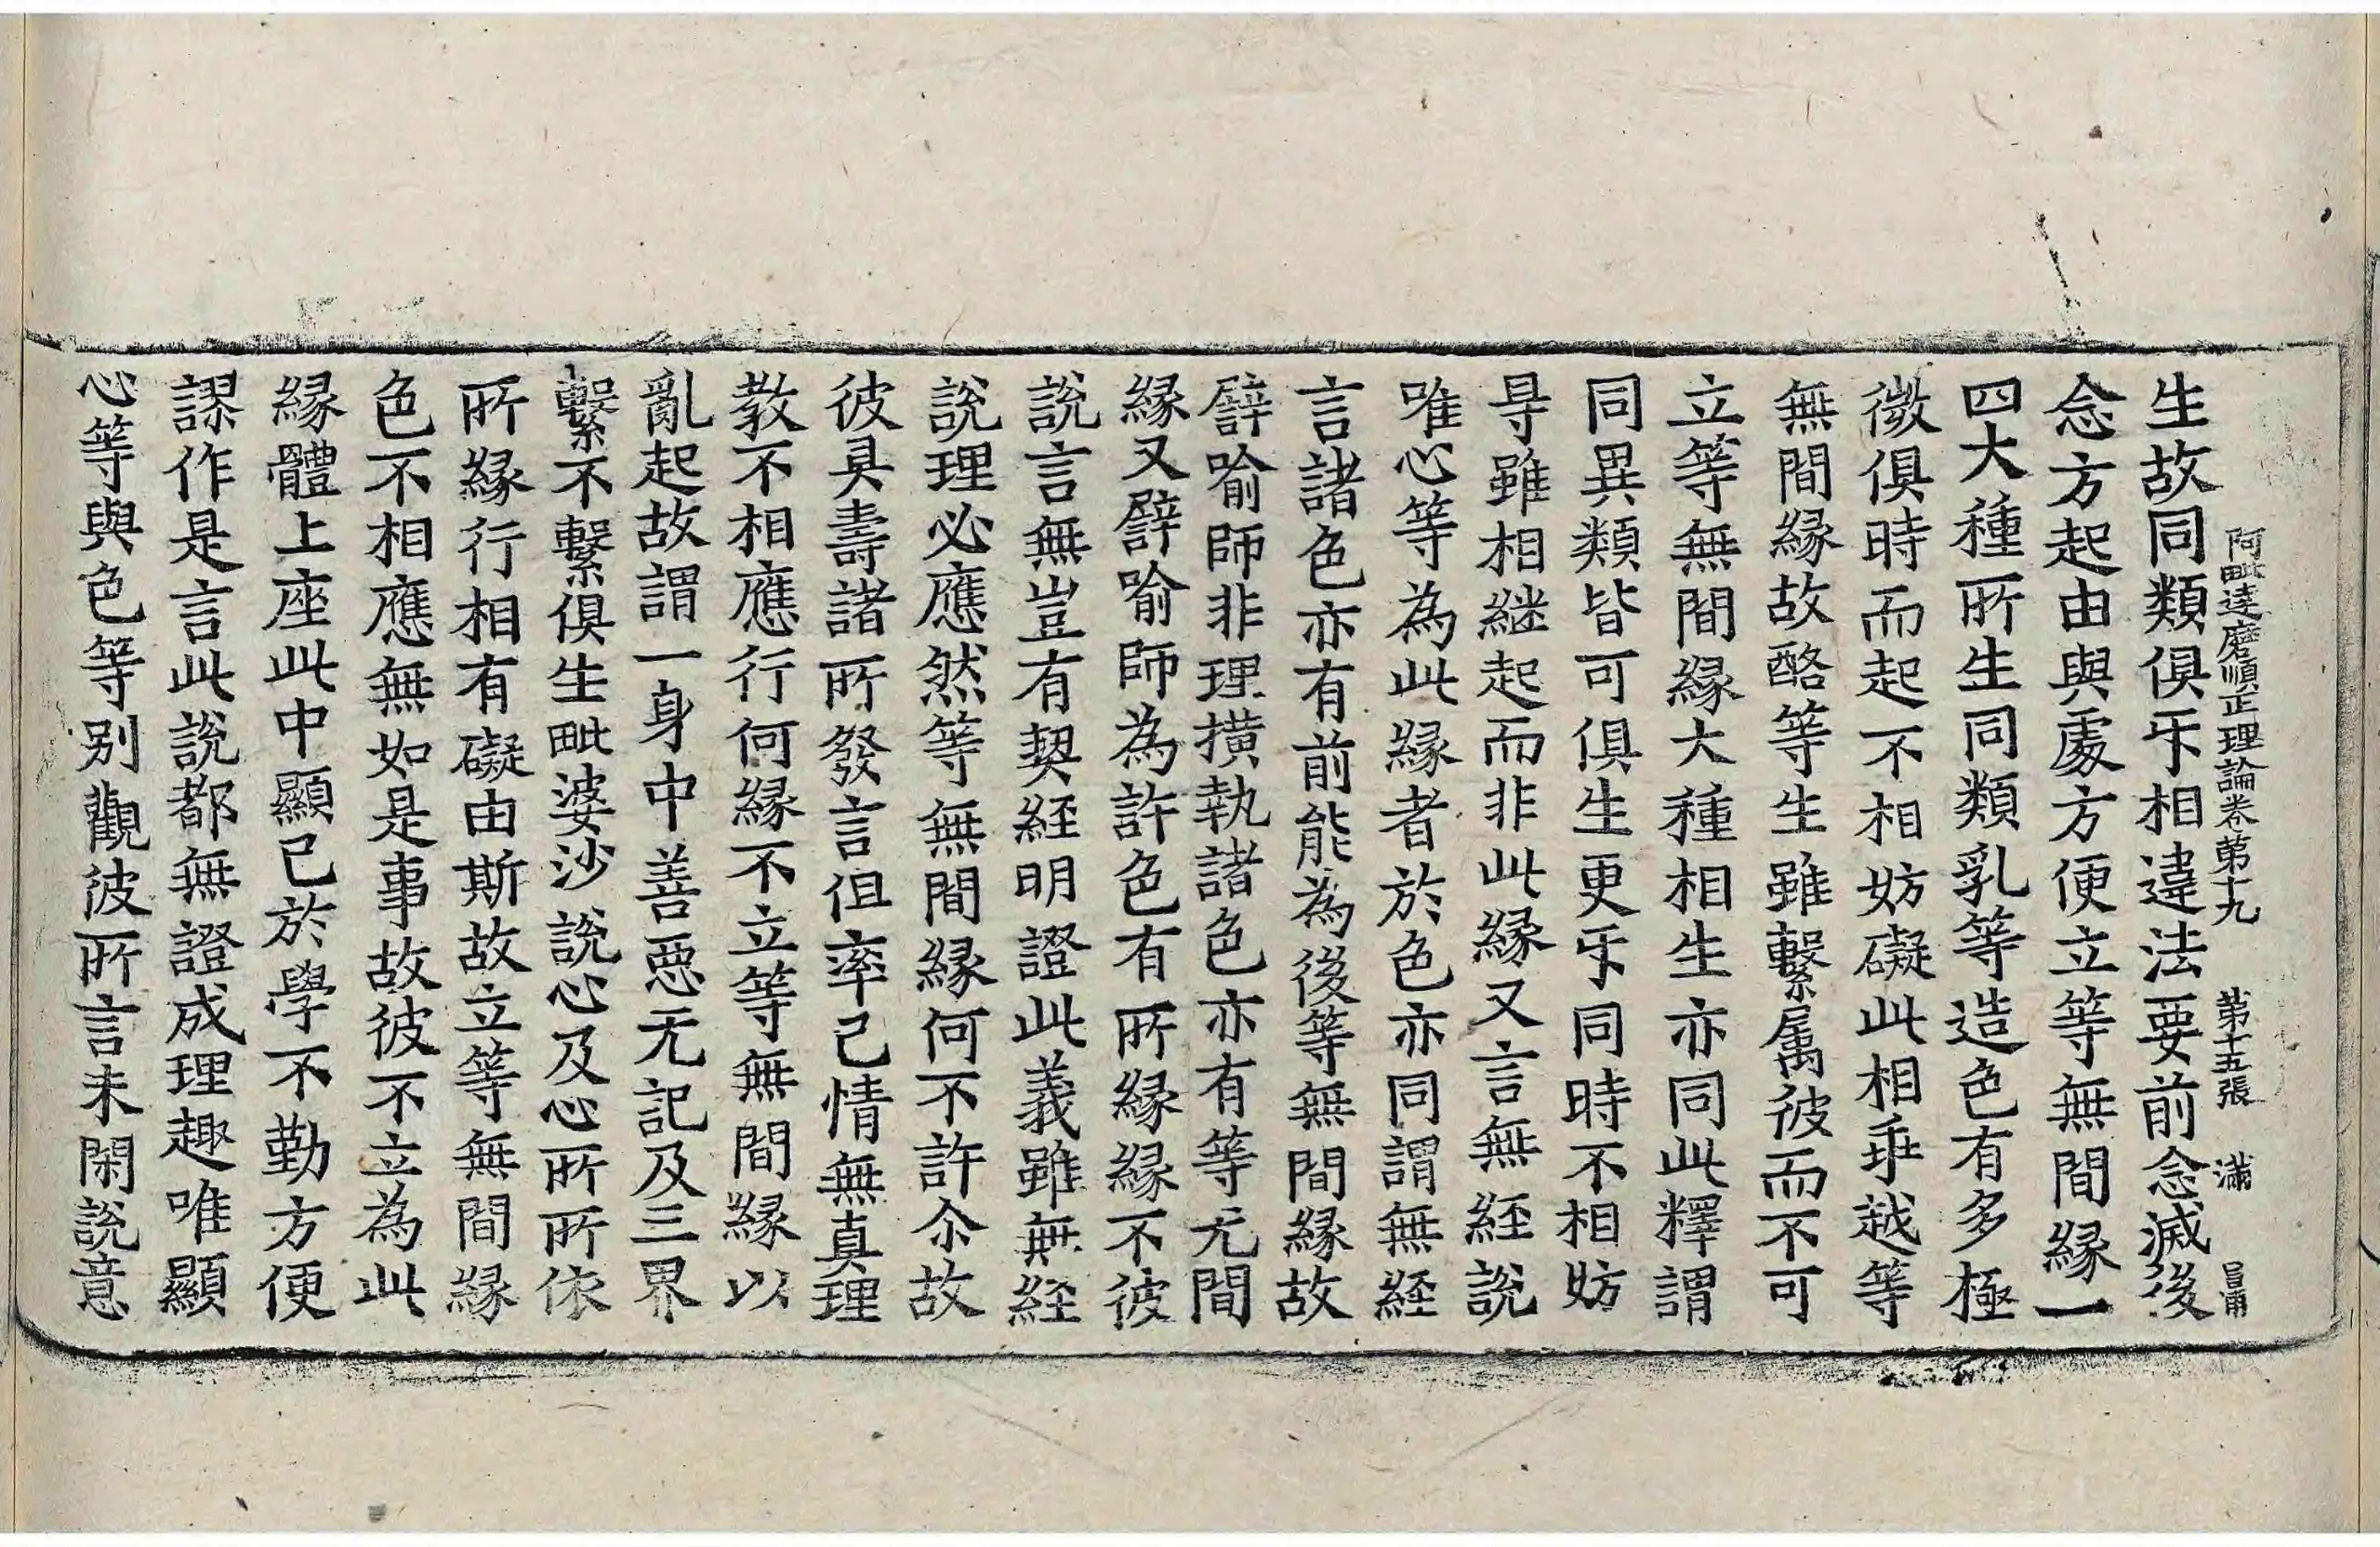 阿毗達磨順正理論卷第十九 第十五張 滿 昌浦
生故同類俱㸦相違法要前念滅後
念方起由與處方便立等無間緣一
四大種所生同類乳等造色有多極
微俱時而起不相妨礙此相乖越等
無間緣故酪等生雖繫属彼而不可
立等無間緣大種相生亦同此釋謂
同異類皆可俱生更㸦同時不相妨
㝵雖相継起而非此緣又言無經說
唯心等為此緣者於色亦同謂無經
言諸色亦有前能為後等無間緣故
譬喻師非理撗執諸色亦有等无間
緣又譬喻師為許色有所緣緣不彼
說言無豈有契經明證此義雖無經
說理必應然等無間緣何不許尒故
彼具壽諸所發言但率己情無真理
教不相應行何緣不立等無間緣以
亂起故謂一身中善惡无記及三界
繫不繫俱生毗婆沙說心及心所所依
所緣行相有礙由斯故立等無間緣
色不相應無如是事故彼不立為此
緣體上座此中顯己於學不勤方便
謬作是言此說都無證成理趣唯顯
心等與色等別觀彼所言未閑說意